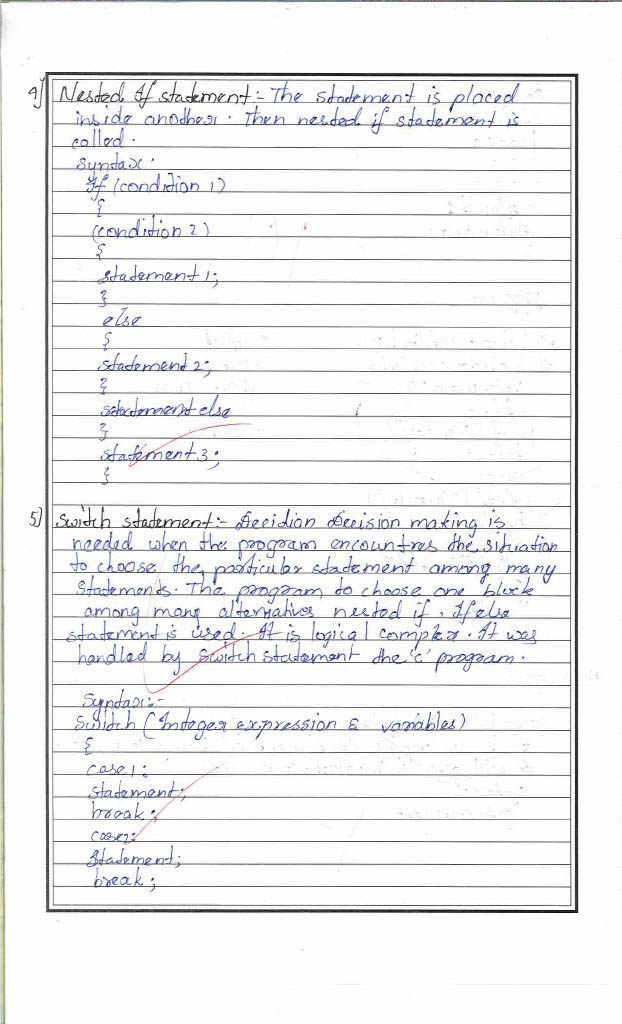 4] Nested If statement :- The statement is placed
inside another. Then nested if statement is
called.
Syntax.
If (condition 1)
{
(condition 2)
{
statement 1;
}
else
{
statemend 2;
}
else
}
statement 3;
}
5] Switch statement :- Decidion Decision making is
needed when the program encountres the situation
to choose the particular statement among many
Statements. The program to choose one block
among many alternatives nested if, If else
statement is used. It is logical complex. It was
handled by switch statement the 'c' program.
Syntax :-
Switch (Integer expression & variables)
{
case 1 :
statement;
break;
case 2:
Statement;
break;